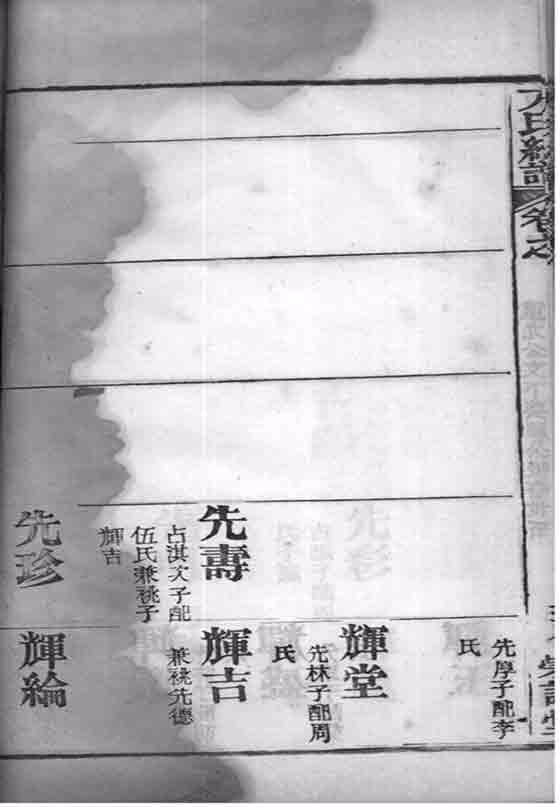 氏統譜
卷之
先厚子配李
氏
輝堂
先林子配周
氏
先壽
占淇次子配
伍氏兼祧子
輝吉
輝吉
兼祧先德
先珍
輝綸